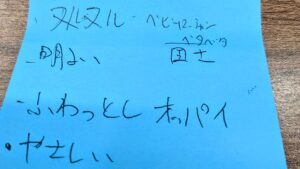 ・ヌルヌル ・ベビーローション
ベタベタ
・明るい 固さ
・ふわっとし オッパイ
・やさしい